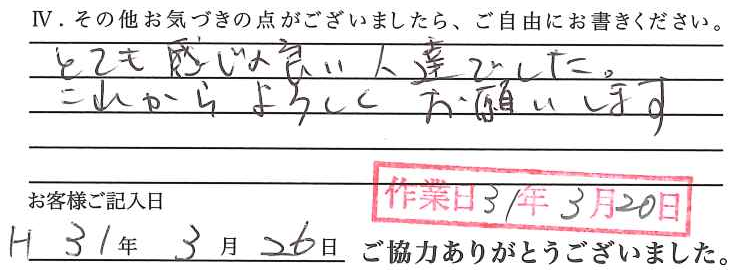 Ⅳ．その他お気づきの点がございましたら、ご自由にお書きください。
とても感じの良い人達でした。
これからよろしくお願いします
お客様ご記入日
作業日31年3月20日
H 31年 3月 26日 ご協力ありがとうございました。